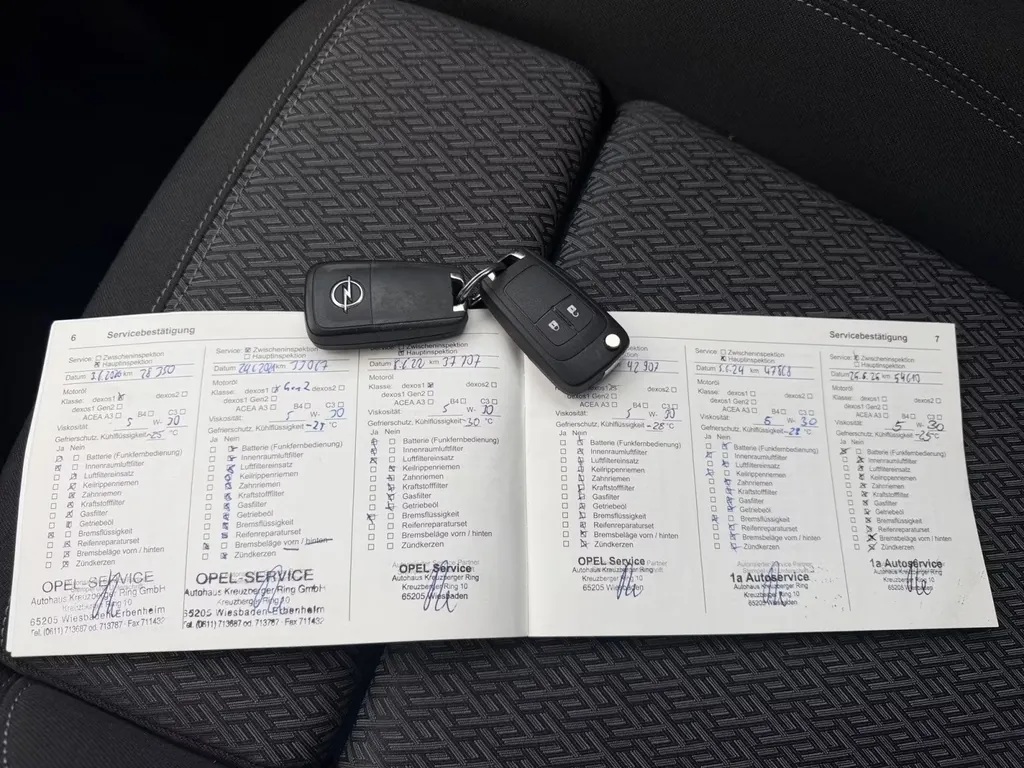 6 Servicebestätigung
Service: Zwischeninspektion
Hauptinspektion
Datum km
Motoröl
Klasse: dexos1 dexos2
dexos1 Gen2
ACEA A3 B4 C3
Viskosität: 5 W- 30
Gefrierschutz, Kühlflüssigkeit -25 °C
Ja Nein
Batterie (Funkfernbedienung)
Innenraumluftfilter
Luftfiltereinsatz
Keilrippenriemen
Zahnriemen
Kraftstofffilter
Gasfilter
Getriebeöl
Bremsflüssigkeit
Reifenreparaturset
Bremsbeläge vorn / hinten
Zündkerzen
OPEL-SERVICE
Autohaus Kreuzberger Ring GmbH
Kreuzberger Ring 10
65205 Wiesbaden-Erbenheim
Tel. (0611) 713687 od. 713787 · Fax 711432
Service: Zwischeninspektion
Hauptinspektion
Datum km
Motoröl
Klasse: dexos1 Gen2 dexos2
dexos1 Gen2
ACEA A3 B4 C3
Viskosität: 5 W- 30
Gefrierschutz, Kühlflüssigkeit -27 °C
Ja Nein
Batterie (Funkfernbedienung)
Innenraumluftfilter
Luftfiltereinsatz
Keilrippenriemen
Zahnriemen
Kraftstofffilter
Gasfilter
Getriebeöl
Bremsflüssigkeit
Reifenreparaturset
Bremsbeläge vorn / hinten
Zündkerzen
OPEL-SERVICE
Autohaus Kreuzberger Ring GmbH
Kreuzberger Ring 10
65205 Wiesbaden-Erbenheim
Tel. (0611) 713687 od. 713787 · Fax 711432
Service: Zwischeninspektion
Hauptinspektion
Datum 8.6.22 km 37 707
Motoröl
Klasse: dexos1 dexos2
dexos1 Gen2
ACEA A3 B4 C3
Viskosität: 5 W- 30
Gefrierschutz, Kühlflüssigkeit -30 °C
Ja Nein
Batterie (Funkfernbedienung)
Innenraumluftfilter
Luftfiltereinsatz
Keilrippenriemen
Zahnriemen
Kraftstofffilter
Gasfilter
Getriebeöl
Bremsflüssigkeit
Reifenreparaturset
Bremsbeläge vorn / hinten
Zündkerzen
OPEL Service
Autohaus Kreuzberger Ring
Kreuzberger Ring 10
65205 Wiesbaden
Servicebestätigung 7
42.907
dexos2
dexos1 Gen2
ACEA A3 B4 C3
Viskosität: 5 W- 30
Gefrierschutz, Kühlflüssigkeit -28 °C
Ja Nein
Batterie (Funkfernbedienung)
Innenraumluftfilter
Luftfiltereinsatz
Keilrippenriemen
Zahnriemen
Kraftstofffilter
Gasfilter
Getriebeöl
Bremsflüssigkeit
Reifenreparaturset
Bremsbeläge vorn / hinten
Zündkerzen
OPEL Service Partner
Autohaus Kreuzberger Ring
Kreuzberger Ring 10
65205 Wiesbaden
Service: Zwischeninspektion
Hauptinspektion
Datum 5.6.24 km 47868
Motoröl
Klasse: dexos1 dexos2
dexos1 Gen2
ACEA A3 B4 C3
Viskosität: 5 W- 30
Gefrierschutz, Kühlflüssigkeit -28 °C
Ja Nein
Batterie (Funkfernbedienung)
Innenraumluftfilter
Luftfiltereinsatz
Keilrippenriemen
Zahnriemen
Kraftstofffilter
Gasfilter
Getriebeöl
Bremsflüssigkeit
Reifenreparaturset
Bremsbeläge vorn / hinten
Zündkerzen
1a Autoservice
Autohaus Kreuzberger Ring
Kreuzberger Ring 10
65205 Wiesbaden
Service: Zwischeninspektion
Hauptinspektion
Datum km
Motoröl
Klasse: dexos1 dexos2
dexos1 Gen2
ACEA A3 B4 C3
Viskosität: 5 W- 30
Gefrierschutz, Kühlflüssigkeit -25 °C
Ja Nein
Batterie (Funkfernbedienung)
Innenraumluftfilter
Luftfiltereinsatz
Keilrippenriemen
Zahnriemen
Kraftstofffilter
Gasfilter
Getriebeöl
Bremsflüssigkeit
Reifenreparaturset
Bremsbeläge vorn / hinten
Zündkerzen
1a Autoservice
Autohaus Kreuzberger Ring
Kreuzberger Ring 10
65205 Wiesbaden